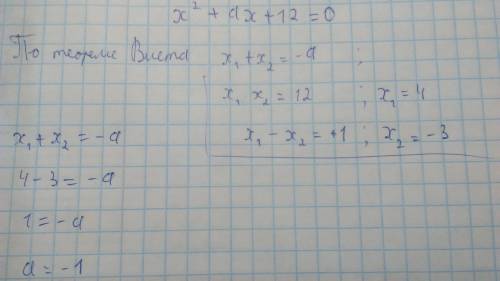 x² + ax + 12 = 0
По теореме Виета x₁ + x₂ = -a ;
x₁ x₂ = 12 ; x₁ = 4
x₁ - x₂ = +1 ; x₂ = -3
x₁ + x₂ = -a
4 - 3 = -a
1 = -a
a = -1